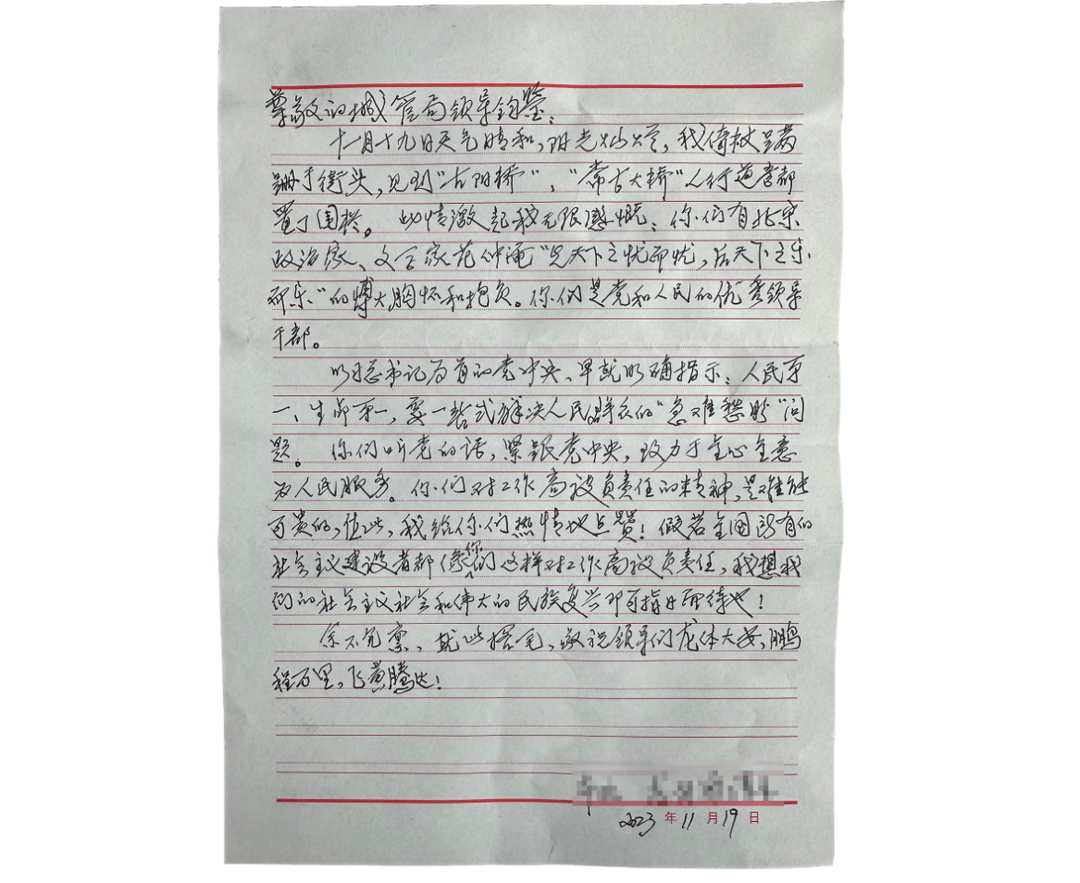 尊敬的城管局领导钧鉴：
十一月十九日天气晴和，阳光灿烂，我倚杖蹒
跚于街头，见到"古阳桥"、"常古大桥"人行道旁都
置了围栏。此情激起我无限感慨：你们有北宋
政治家、文学家范仲淹"先天下之忧而忧，后天下之乐
而乐"的博大胸怀和抱负。你们是党和人民的优秀领导
干部。
以习总书记为首的党中央、早就明确指示：人民第
一、生命第一，要一站式解决人民群众的"急难愁盼"问
题。你们听党的话，紧跟党中央，致力于全心全意
为人民服务。你们对工作高度负责任的精神，是难能
可贵的，值此，我给你们热情地点赞！假若全国所有的
社会主义建设者都像你们这样对工作高度负责任，我想我
们的社会主义社会和伟大的民族复兴即可指日而待也！
余不冗禀，就此搁笔，敬祝领导们龙体大安，鹏
程万里，飞黄腾达！
2023年11月19日